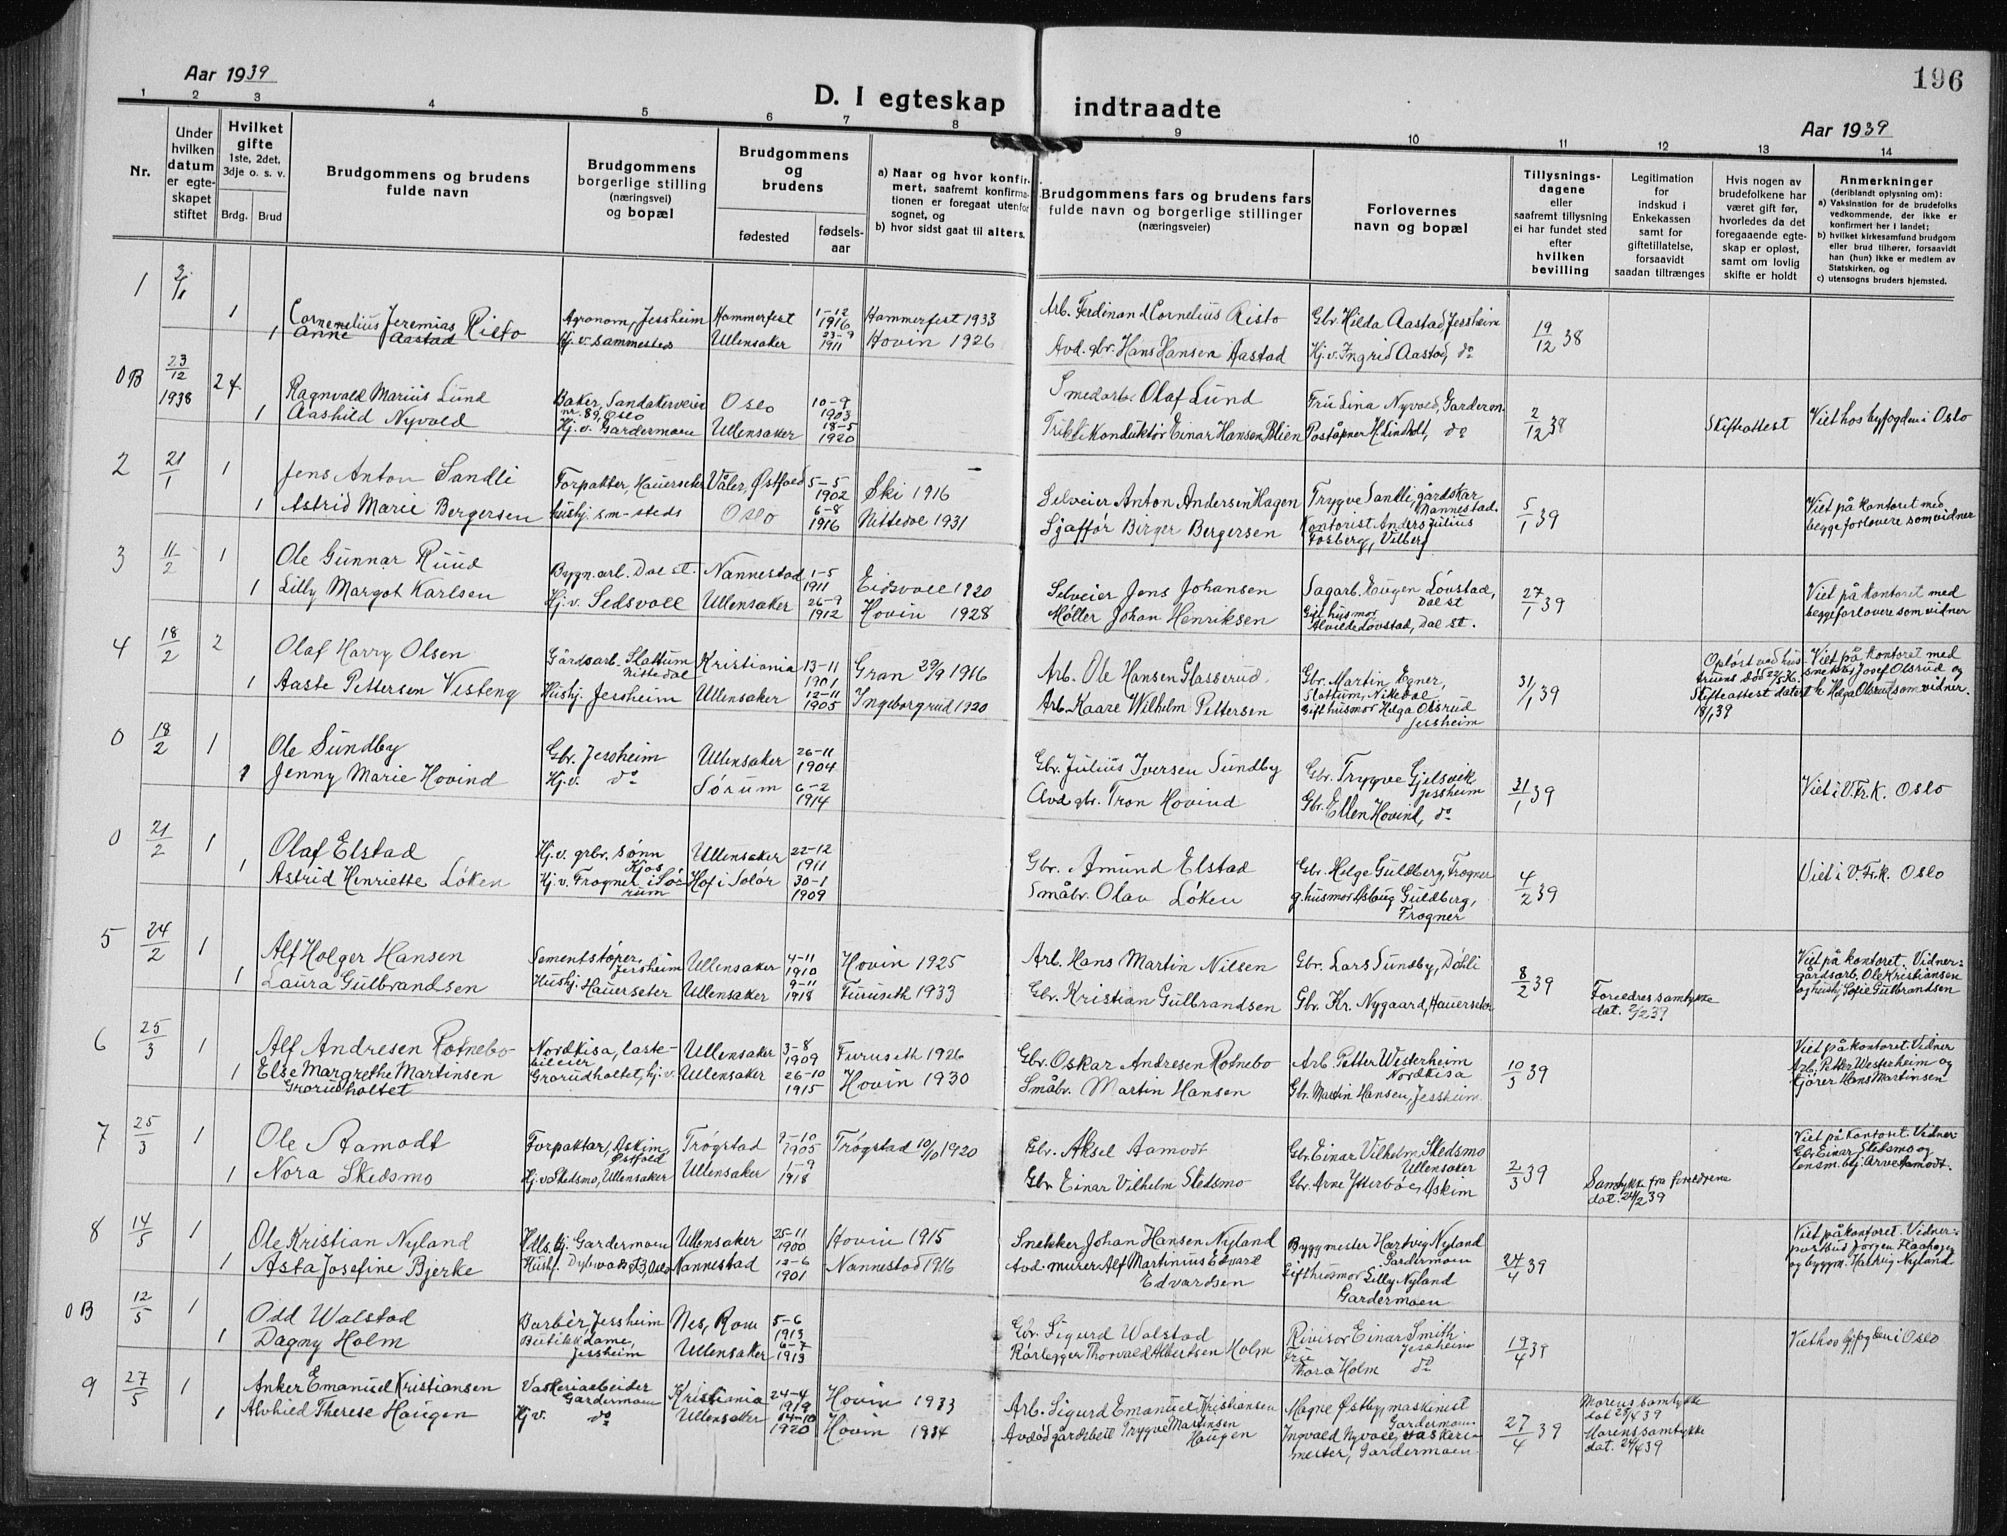 Aar 1939
D. I egteskap indtraadte
196
Aar 1939
1 2 3 4 5 6 7 8 9 10 11 12 13 14
Nr.
Under hvilken datum er egte-skapet stiftet
Hvilket gifte 1ste, 2det, 3dje o. s. v.
Brdg. Brud
Brudgommens og brudens fulde navn
Brudgommens borgerlige stilling (næringsvei) og bopæl
Brudgommens og brudens
fødested fødsels-aar
a) Naar og hvor konfir-mert, saafremt konfirma-tionen er foregaat utenfor sognet, og
b) hvor sidst gaat til alters.
Brudgommens fars og brudens fars fulde navn og borgerlige stillinger (næringsveier)
Forlovernes navn og bopæl
Tillysnings-dagene eller saafremt tillysning ei har fundet sted efter hvilken bevilling
Legitimation for indskud i Enkekassen samt for giftetillatelse, forsaavidt saadan tiltrænges
Hvis nogen av brudefolkene har været gift før, hvorledes da det foregaaende egte-skap er opløst, samt om lovlig skifte er holdt
Anmerkninger (deriblandt oplysning om):
a) Vaksination for de brudefolks vedkommende, der ikke er konfirmert her i landet;
b) hvilket kirkesamfund brudgom eller brud tilhører, forsaavidt han (hun) ikke er medlem av Statskirken, og
c) utensogns bruders hjemsted.
1 3/1 1 Cornenelius Jeremias Risto Agronom, Jessheim Hammerfest 1-12 1916 Hammerfest 1933 Arb. Ferdinand Cornelius Risto Gbr. Hilda Aastad Jessheim 19/12 38
1 Anne Aastad Hj. v. sammesteds Ullensaker 23-9 1911 Hovin 1926 Avd. gbr. Hans Hansen Aastad Hj. v. Ingrid Aastad, do
0B 23/12 1938 2 Ragnvald Marius Lund Baker, Sandakerveien nr. 89, Oslo Oslo 10-9 1903 Smedarb. Olaf Lund Fru Lina Nyvold, Garderm. 2/12 38 Skifteattest Viet hos byfogden i Oslo
1 Aashild Nyvold Hj. v. Gardermoen Ullensaker 18-5 1920 Trikkekonduktør Einar Hansen Blien Poståpner H. Lindholt, do
2 21/1 1 Jens Anton Sandli Forpakter, Hauerseter Våler, Østfold 5-5 1902 Ski 1916 Selveier Anton Andersen Hagen Trygve Sandli, gårdskar Nannestad. 5/1 39 Viet på kontoret med begge forlovere som vidner
1 Astrid Marie Bergersen Hushj. sm-steds Oslo 6-8 1916 Nittedal 1931 Sjaffør Berger Bergersen Kontorist Anders Julius Fosberg, Vilberg
3 11/2 1 Ole Gunnar Ruud Bygn. arb. Dal st. Nannestad 1-5 1911 Eidsvoll 1920 Selveier Jens Johansen Sagarb. Eugen Løvstad, Dal st 27/1 39 Viet på kontoret med begge forlovere som vidner
1 Lilly Margot Karlsen Hj. v. Sedsvoll Ullensaker 26-9 1912 Hovin 1928 Møller Johan Henriksen Gift husmor Alvilde Løvstad, Dal st.
4 18/2 2 Olaf Harry Olsen Gårdsarb. Slattum Nittedal Kristiania 13-11 1901 Gran 29/9 1916 Arb. Ole Hansen Glasserud. Gbr. Martin Egner, Slattum, Nittedal 31/1 39 Opløst ved hus-truens død 22/5 36. Skifteattest datert 18/1 39 Viet på kontoret med Josef Olsrud og Helga Olsrud som vidner.
1 Aaste Pettersen Visteng Hushj. Jessheim Ullensaker 12-11 1905 Ingeborgrud 1920 Arb. Kaare Wilhelm Pettersen Gift husmor Helga Olsrud Jessheim
0 18/2 1 Ole Sundby Gbr. Jessheim Ullensaker 26-11 1904 Gbr. Julius Iversen Sundby Gbr. Trygve Gjelsvik Jessheim 31/1 39 Viet i V. Fr. K. Oslo
1 Jenny Marie Hovind Hj. v. do Sørum 6-2 1914 Avd gbr. Tron Hovind Gbr. Ellen Hovind, do
0 21/2 1 Olaf Elstad Hj. v. grbr. sønn Kjos Ullensaker 22-12 1911 Gbr. Amund Elstad Gbr. Helge Guldberg, Frogner 4/2 39 Viet i V. Fr. K. Oslo
1 Astrid Henriette Løken Hj. v. Frogner i Sørum Hof i Solør 30-1 1909 Småbr. Olav Løken g. husmor Aslaug Guldberg, Frogner
5 24/2 1 Alf Holger Hansen Sementstøper, Jessheim Ullensaker 4-11 1910 Hovin 1925 Arb. Hans Martin Nilsen Gbr. Lars Sundby, Døhli 8/2 39 Foreldres samtykke dat. 2/2 39 Viet på kontoret. Vidner: gårdsarb. Ole Kristiansen og hushj. Sofie Gulbrandsen
1 Laura Gulbrandsen Hushj. Hauerseter Ullensaker 9-11 1918 Furuseth 1933 Gbr. Kristian Gulbrandsen Gbr. Kr. Nygaard, Hauerseter
6 25/3 1 Alf Andresen Rotnebo Nordkisa, laste-bileier Ullensaker 3-8 1909 Furuseth 1926 Gbr. Oskar Andresen Rotnebo Arb. Petter Westerheim Nordkisa 10/3 39 Viet på kontoret. Vidner Arb. Petter Westerheim og kjører Hans Martinsen
1 Else Margrethe Martinsen Grorudholtet Grorudholtet, hj. v. Ullensaker 26-10 1915 Hovin 1930 Småbr. Martin Hansen Gbr. Martin Hansen, Jessheim
7 25/3 1 Ole Aamodt Forpakter, Askim Østfold Trøgstad 9-10 1905 Trøgstad 10/10 1920 Gbr. Aksel Aamodt Gbr. Einar Vilhelm Skedsmo Ullensaker 2/3 39 Samtykke fra foreldrene dat. 24/2 39 Viet på kontoret. Vidner: Gbr. Einar Skedsmo og lensm. btj. Arve Aamodt.
1 Nora Skedsmo Hj. v. Skedsmo, Ullensaker Ullensaker 1-9 1918 Gbr Einar Vilhelm Skedsmo Gbr. Arne Ytterbøe, Askim
8 14/5 1 Ole Kristian Nyland Hdls. bj. Gardermoen Ullensaker 25-11 1900 Hovin 1915 Snekker Johan Hansen Nyland Byggmester Hartvig Nyland Gardermoen 24/4 39 Viet på kontoret. Vidner: postbud Jørgen og byggm. Hartvig Nyland
1 Asta Josefine Bjerke Oslo Nannestad 12-6 1901 Nannestad 1916 Avd. murer Alf Martinius Edvard Edvardsen Gift husmor Lilly Nyland Gardermoen
0B 12/5 1 Odd Walstad Barbér, Jessheim Nes, Rom 5-6 1913 Gbr. Sigurd Walstad Rivisor Einar Smith Jessheim 19/4 39 Viet hos byfogden i Oslo
1 Dagny Holm Butikkdame, Jessheim Ullensaker 6-7 1913 Rørlegger Thorvald Albertsen Holm Fru Thora Holm do
9 27/5 1 Anker Emanuel Kristiansen Vaskeriarbeider Gardermoen Kristiania 24-4 1919 Hovin 1933 Arb. Sigurd Emanuel Kristiansen Magne Østby, maskinist Gardermoen 27/4 39 Morens samtykke dat 25/4 39
1 Alvhild Therese Haugen Hj. v. do Ullensaker 14-10 1920 Hovin 1934 Avdød gårdsbest. Trygve Martinsen Haugen Ingvald Nyvoll, vaskeri-mester, Gardermoen Morens samtykke dat. 24/4 39